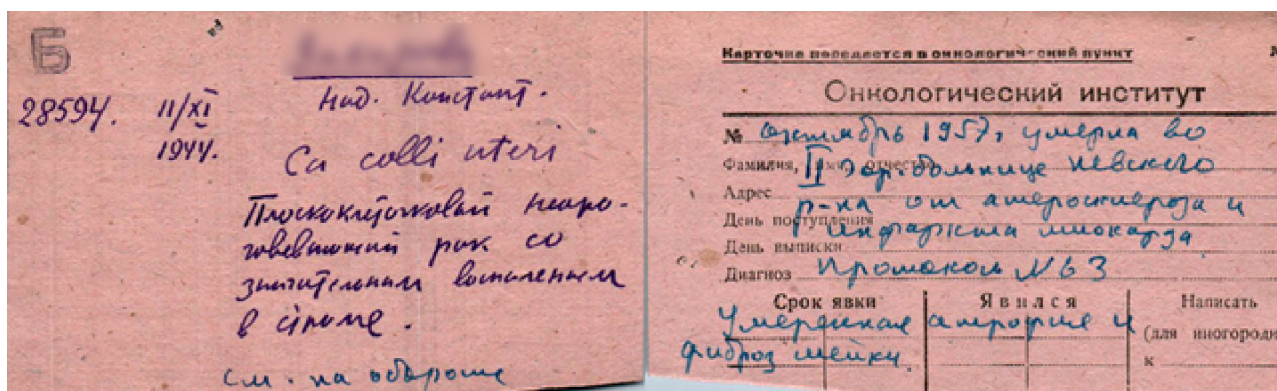 Б
28594. 11/XI
1944.
Над. Констант.
Ca colli uteri
Плоскоклеточковый неоро-
говевающий рак со
значительным воспалением
в строме.
см. на обороте
Карточка передается в онкологический пункт
Онкологический институт
№ октябрь 1957, умерла во
Фамилия, имя, отчество II гор. больнице Невского
Адрес р-на от атеросклероза и
День поступления инфаркта миокарда
День выписки
Диагноз Протокол № 63
Срок явки Явился Написать
Умеренная атрофия и (для иногородн
фиброз шейки. к